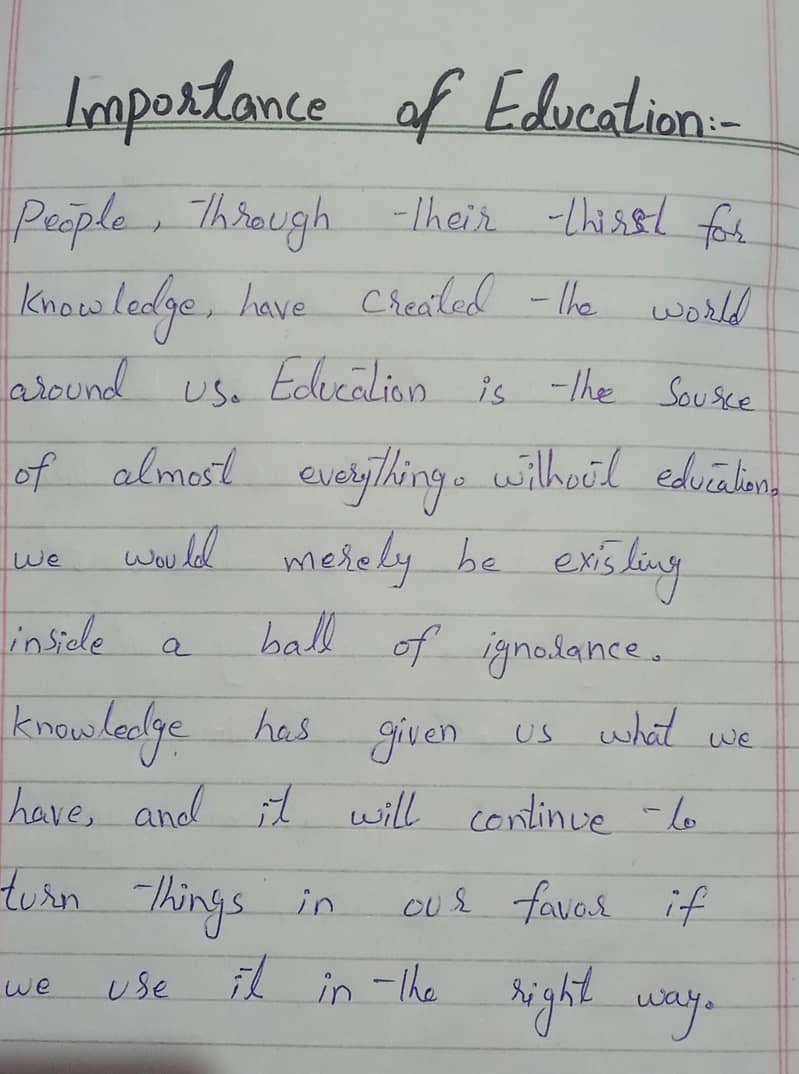 Importance of Education:-
People, Through their thirst for
Knowledge, have created the world
around us. Education is the source
of almost everything. without education,
we would merely be existing
inside a ball of ignorance.
Knowledge has given us what we
have, and it will continue to
turn Things in our favor if
we use it in the right way.